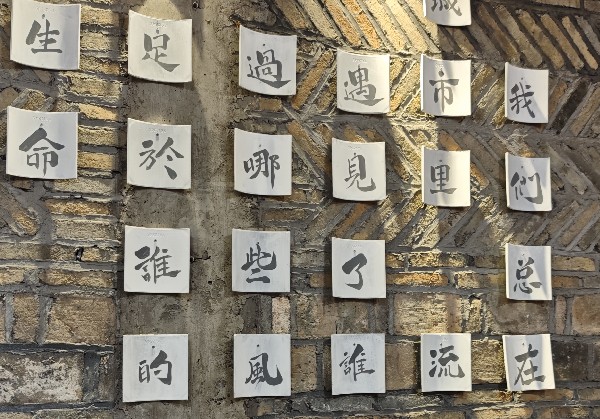 我們总在
城市里流
遇見了誰
過哪些風
足於誰的
生命